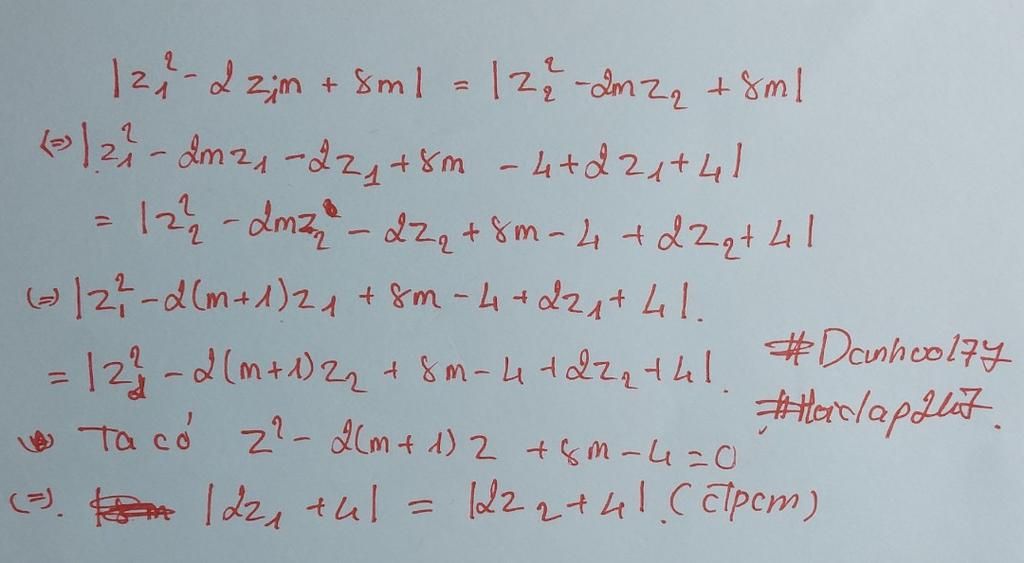 |z₁² - 2z₁m + 8m| = |z₂² - 2mz₂ + 8m|
(=>) |z₁² - 2mz₁ - 2z₁ + 8m - 4 + 2z₁ + 4|
= |z₂² - 2mz₂ - 2z₂ + 8m - 4 + 2z₂ + 4|
(=) |z₁² - 2(m+1)z₁ + 8m - 4 + 2z₁ + 4|.
= |z₂² - 2(m+1)z₂ + 8m - 4 + 2z₂ + 4|.
Ta có z² - 2(m+1)z + 8m - 4 = 0
(=). |2z₁ + 4| = |2z₂ + 4|. (đpcm)